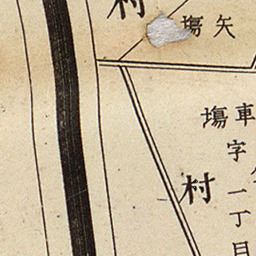 村
矢塲
車
塲
字一丁目
村